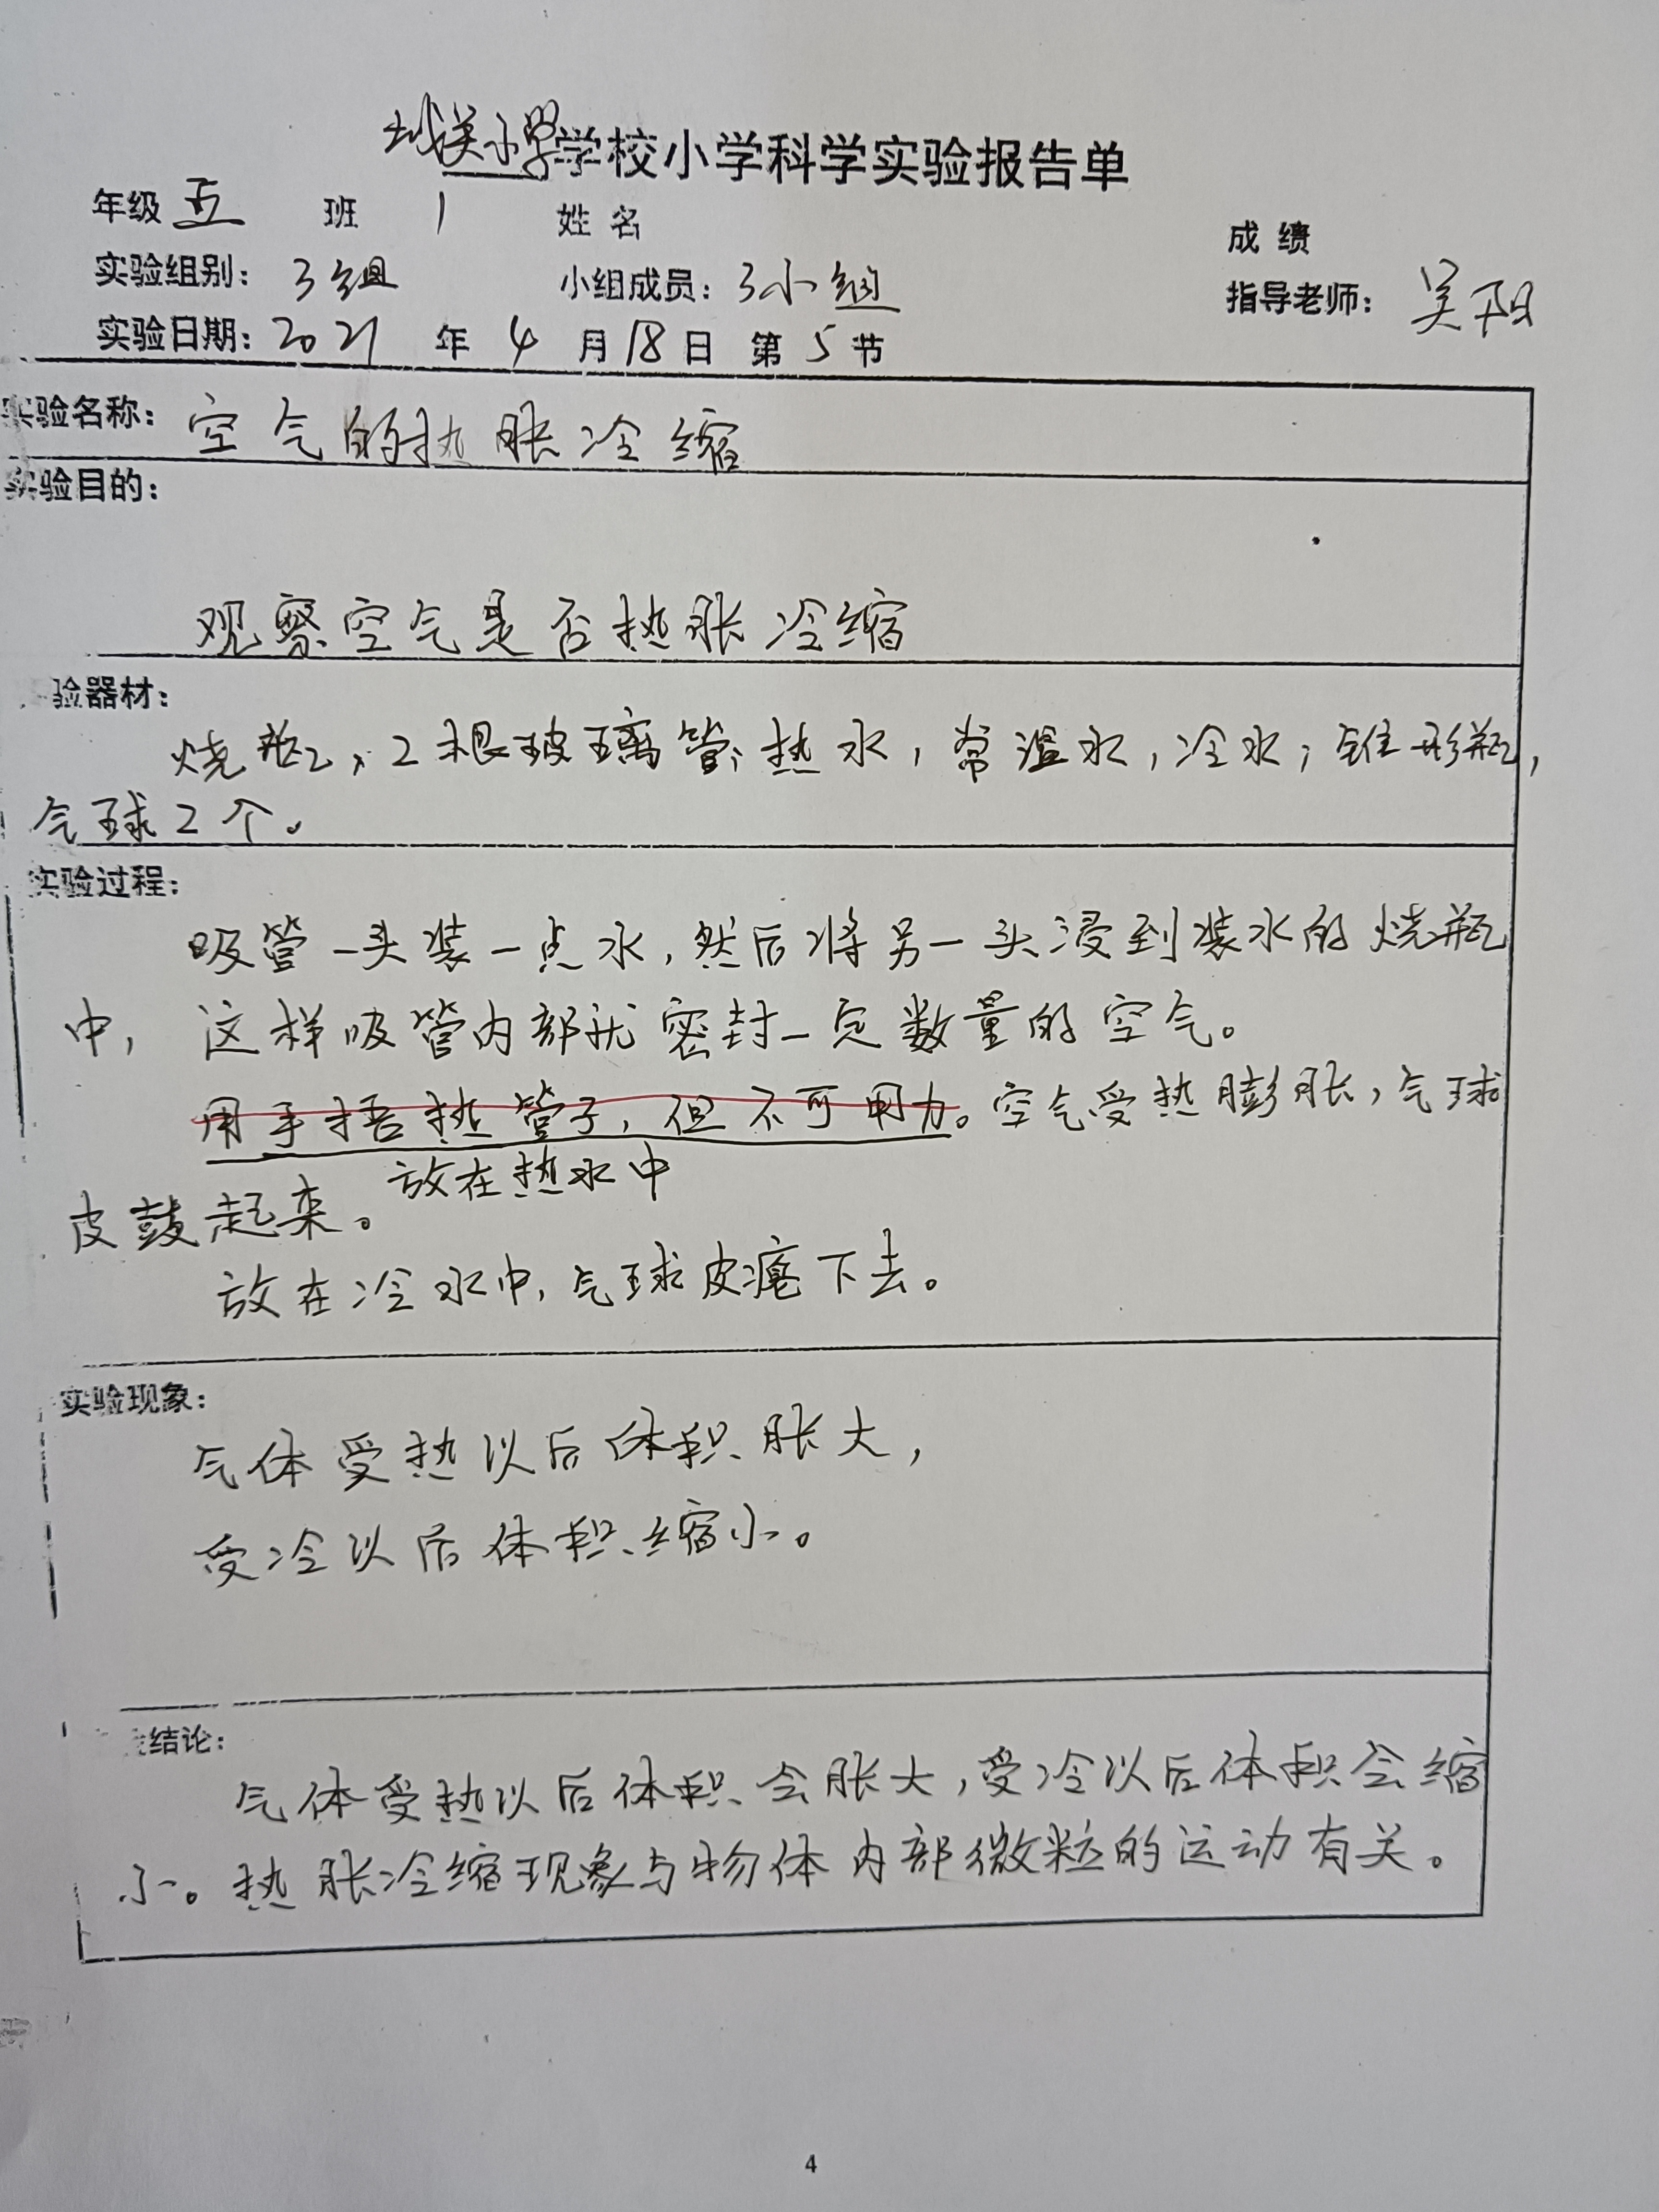 城关小学学校小学科学实验报告单
年级 五 班 1 姓名 成绩
实验组别: 3组 小组成员: 3小组 指导老师: 吴阳
实验日期: 2021 年 4 月 18 日 第 5 节
实验名称: 空气的热胀冷缩
实验目的:
观察空气是否热胀冷缩
验器材:
烧瓶,2根玻璃管;热水,常温水,冷水;锥形瓶,
气球2个。
实验过程:
吸管一头装一点水,然后将另一头浸到装水的烧瓶
中,这样吸管内部就密封一定数量的空气。
用手捂热管子,但不可用力。空气受热膨胀,气球
放在热水中
皮鼓起来。
放在冷水中,气球皮瘪下去。
实验现象:
气体受热以后体积胀大,
受冷以后体积缩小。
结论:
气体受热以后体积会胀大,受冷以后体积会缩
小。热胀冷缩现象与物体内部微粒的运动有关。
4